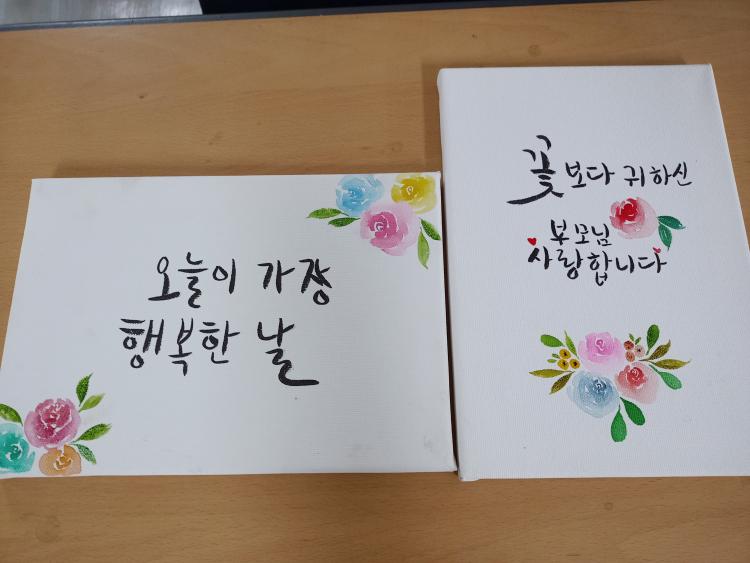 오늘이 가장
행복한 날
꽃보다 귀하신
부모님
사랑합니다